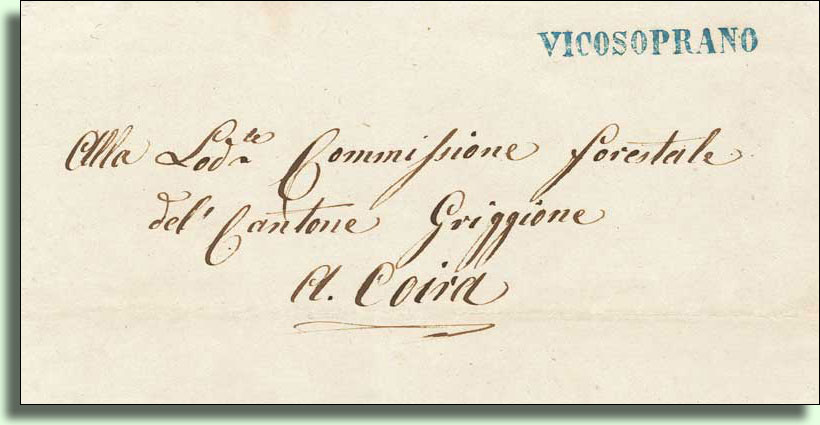 VICOSOPRANO
Alla Lod.le Commissione forestale
del' Cantone Griggione
A. Coira